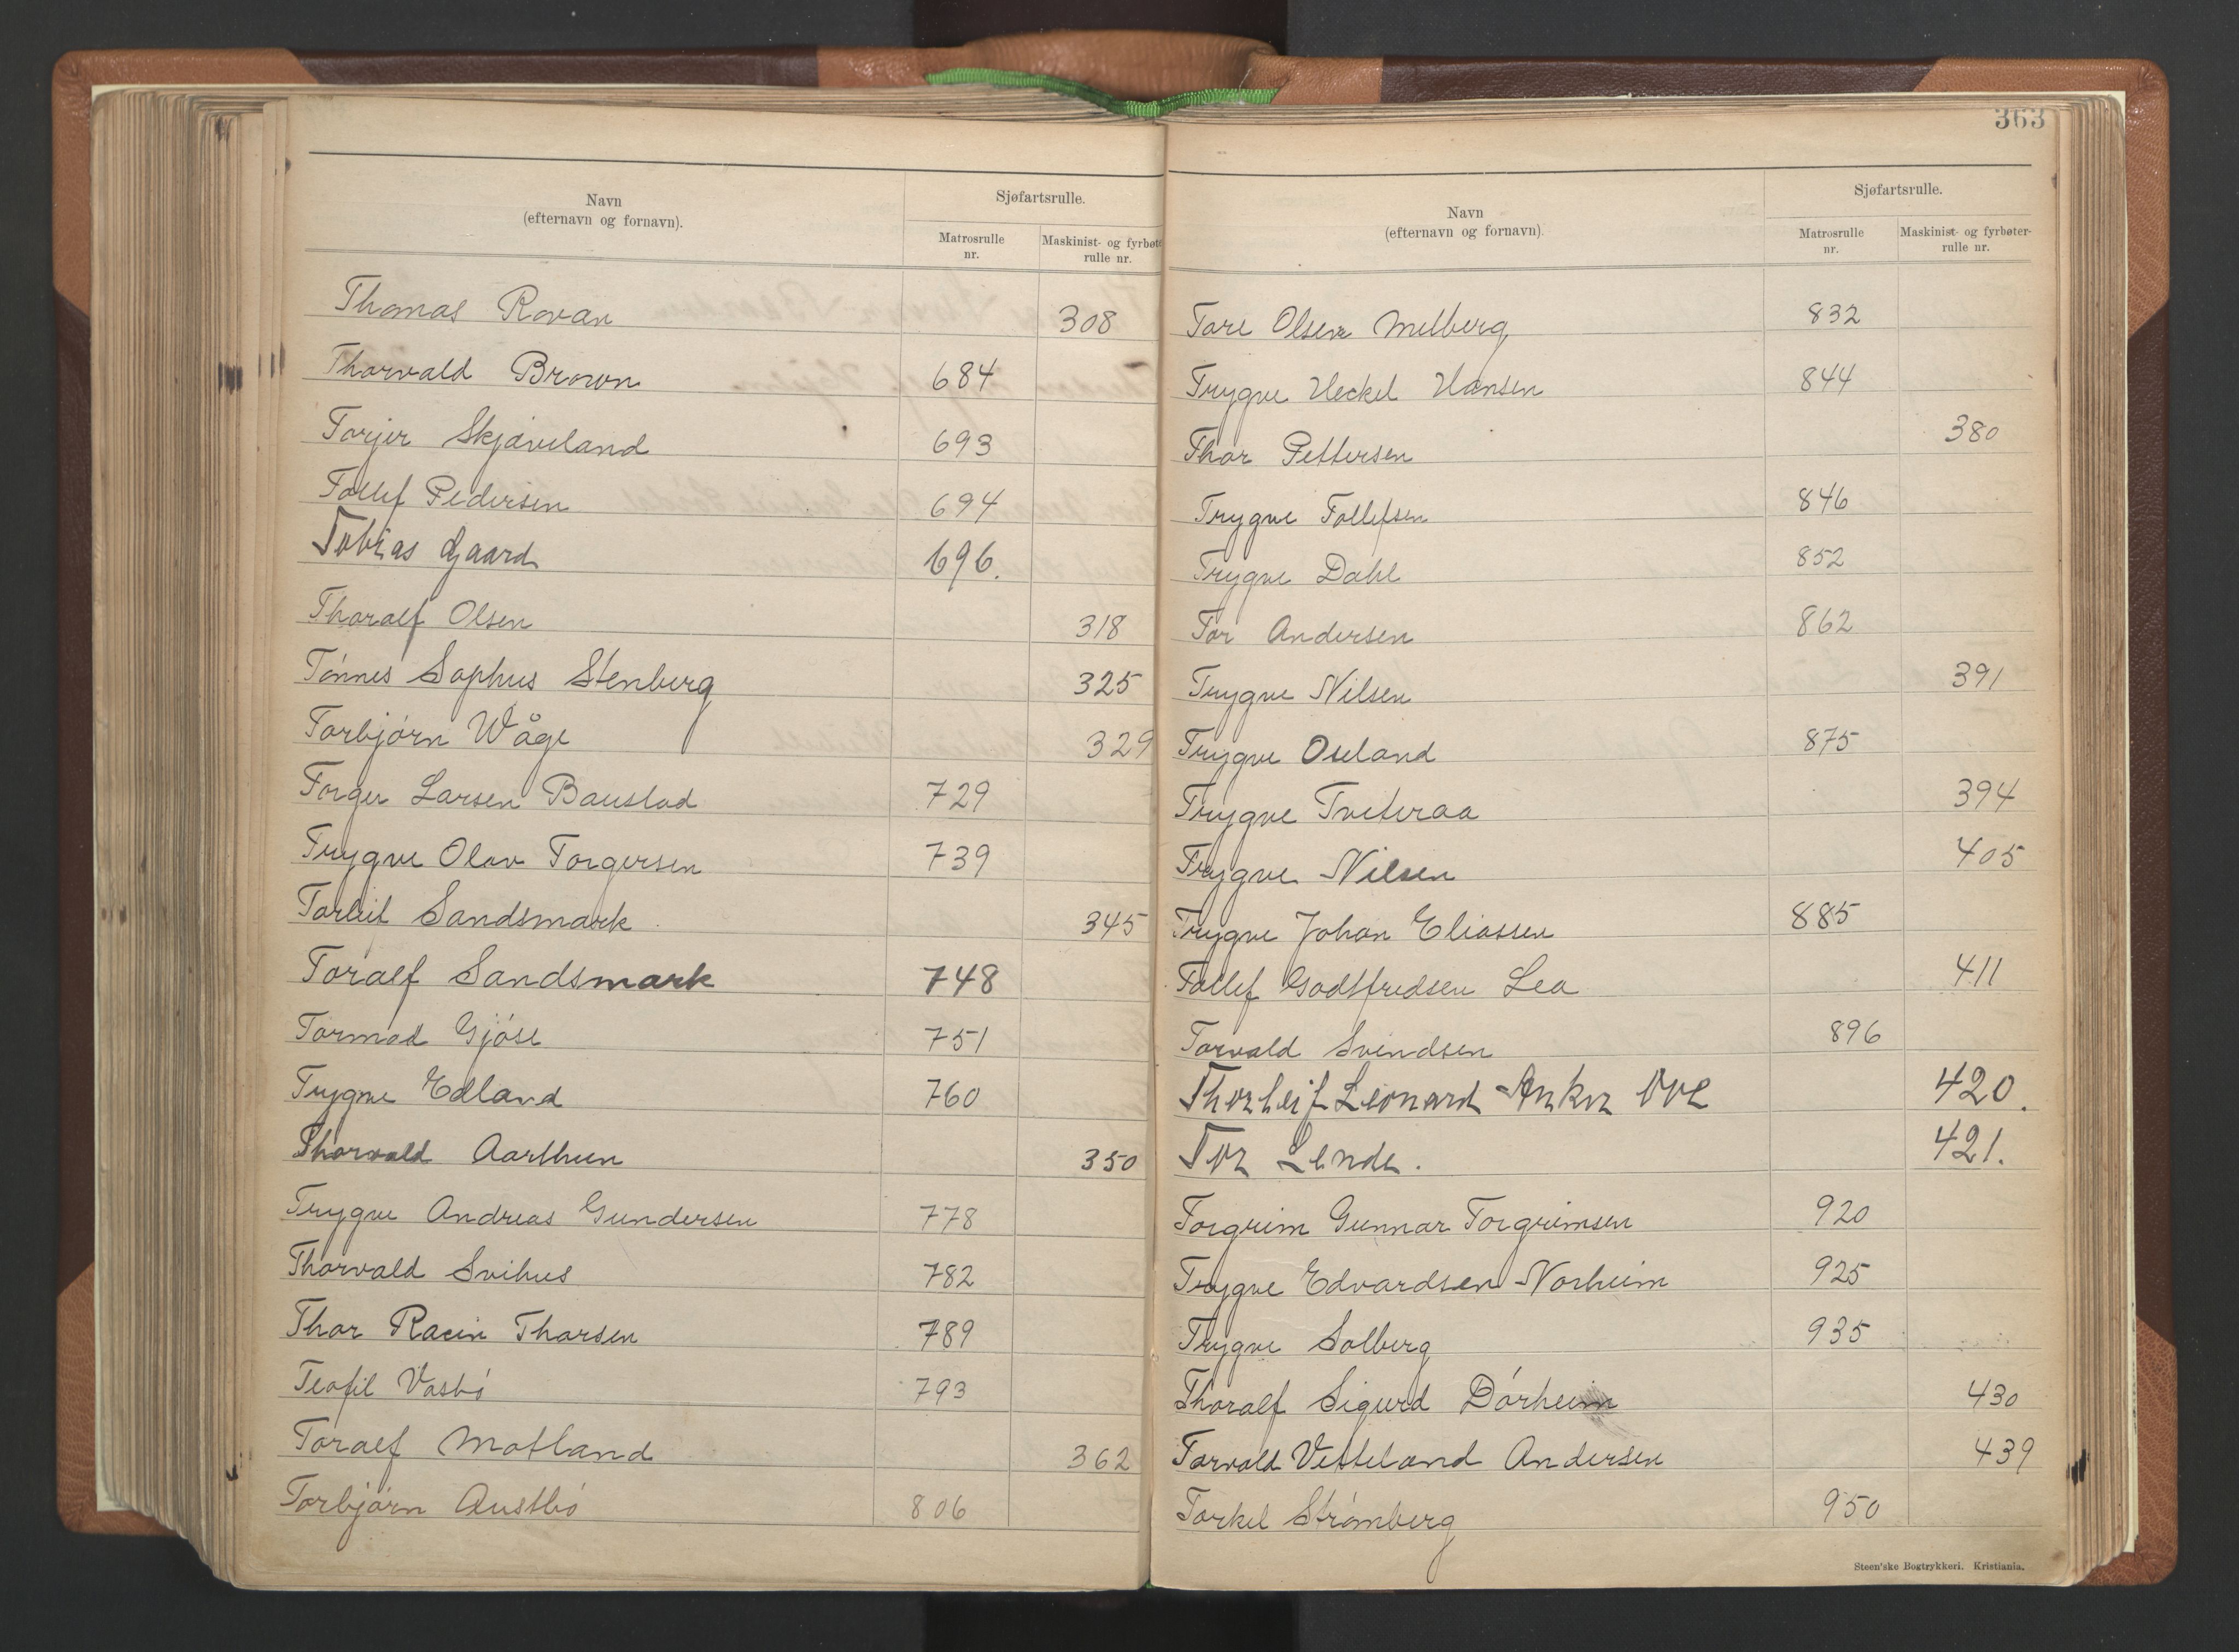 Navn
(efternavn og fornavn).
Sjøfartsrulle.
Matrosrulle
nr.
Maskinist- og fyrbøte
rulle nr.
Thomas Rovan 308
Thorvald Brown 684
Torjer Skjæveland 693
Tollef Pedersen 694
Tobias Gaard 696.
Thoralf Olsen 318
Tønnes Sophus Stenberg 325
Torbjørn Wåge 329
Torger Larsen Baustad 729
Trygve Olav Torgersen 739
Torleif Sandsmark 345
Toralf Sandsmark 748
Tormod Gjøse 751
Trygve Edland 760
Thorvald Aarthun 350
Trygve Andreas Gundersen 778
Thorvald Svihus 782
Thor Racin Thorsen 789
Teofil Vasbø 793
Toralf Motland 362
Torbjørn Austbø 806
363
Navn
(efternavn og fornavn).
Sjøfartsrulle.
Matrosrulle
nr.
Maskinist- og fyrbøter-
rulle nr.
Tore Olsen Melberg 832
Trygve Heckel Hansen 844
Thor Pettersen 380
Trygve Tollefsen 846
Trygve Dahl 852
Tor Andersen 862
Trygve Nilsen 391
Trygve Oseland 875
Trygve Tveteraa 394
Trygve Nilsen 405
Trygve Johan Eliassen 885
Tollef Godtfredsen Lea 411
Torvald Svendsen 896
Thorleif Leonard Anker 420.
Tor Lende. 421.
Torgrim Gunnar Torgrimsen 920
Trygve Edvardsen Norheim 925
Trygve Solberg 935
Thoralf Sigurd Dørheim 430
Torvald Vetteland Andersen 439
Torkel Strømberg 950
Steen'ske Bogtrykkeri. Kristiania.